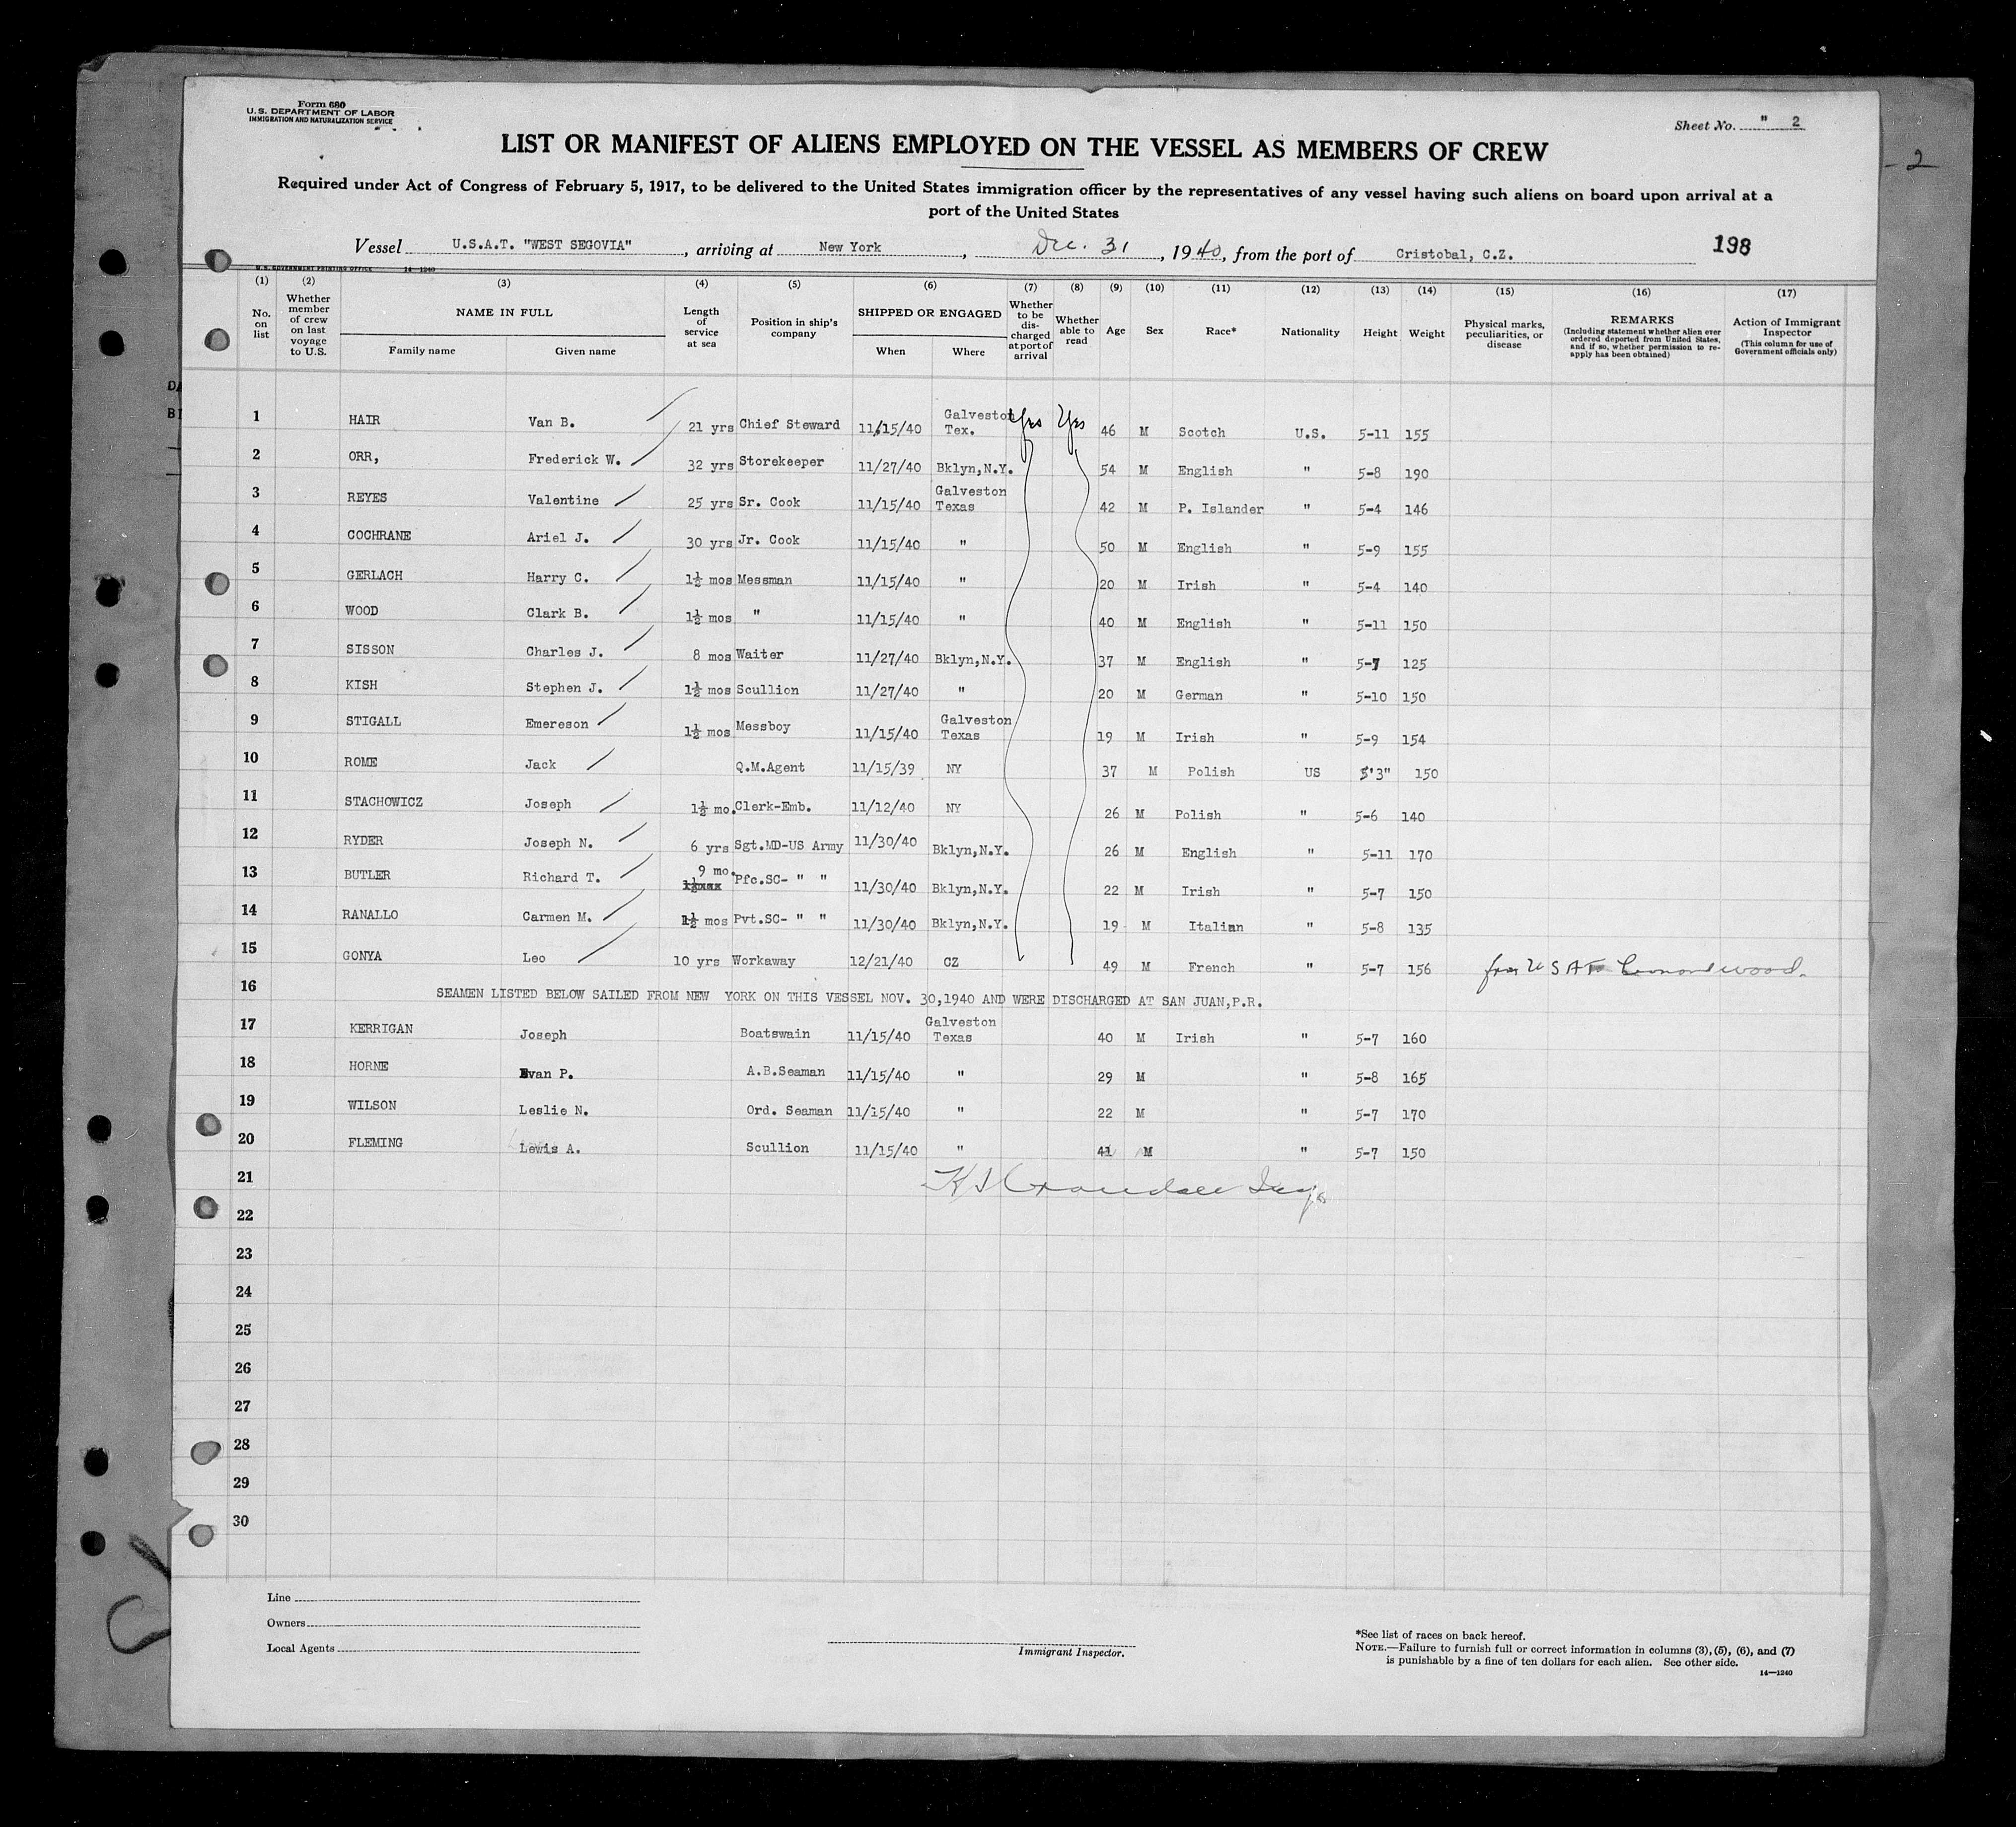 Form 680
U.S. DEPARTMENT OF LABOR
IMMIGRATION AND NATURALIZATION SERVICE
Sheet No. " 2
- 2
LIST OR MANIFEST OF ALIENS EMPLOYED ON THE VESSEL AS MEMBERS OF CREW
Required under Act of Congress of February 5, 1917, to be delivered to the United States immigration officer by the representatives of any vessel having such aliens on board upon arrival at a
port of the United States
Vessel U.S.A.T. "WEST SEGOVIA", arriving at New York, Dec. 31, 1940, from the port of Cristobal, C.Z. 198
U.S. GOVERNMENT PRINTING OFFICE 14-1240
(1) (2) (3) (4) (5) (6) (7) (8) (9) (10) (11) (12) (13) (14) (15) (16) (17)
No. on list
Whether member of crew on last voyage to U.S.
NAME IN FULL
Family name Given name
Length of service at sea
Position in ship's company
SHIPPED OR ENGAGED
When Where
Whether to be discharged at port of arrival
Whether able to read
Age Sex Race* Nationality Height Weight
Physical marks, peculiarities, or disease
REMARKS
(Including statement whether alien ever ordered deported from United States, and if so, whether permission to re-apply has been obtained)
Action of Immigrant Inspector
(This column for use of Government officials only)
1 HAIR Van B. 21 yrs Chief Steward 11/15/40 Galveston Tex. Yes Yes 46 M Scotch U.S. 5-11 155
2 ORR, Frederick W. 32 yrs Storekeeper 11/27/40 Bklyn,N.Y. 54 M English " 5-8 190
3 REYES Valentine 25 yrs Sr. Cook 11/15/40 Galveston Texas 42 M P. Islander " 5-4 146
4 COCHRANE Ariel J. 30 yrs Jr. Cook 11/15/40 " 50 M English " 5-9 155
5 GERLACH Harry C. 1½ mos Messman 11/15/40 " 20 M Irish " 5-4 140
6 WOOD Clark B. 1½ mos " 11/15/40 " 40 M English " 5-11 150
7 SISSON Charles J. 8 mos Waiter 11/27/40 Bklyn,N.Y. 37 M English " 5-7 125
8 KISH Stephen J. 1½ mos Scullion 11/27/40 " 20 M German " 5-10 150
9 STIGALL Emereson 1½ mos Messboy 11/15/40 Galveston Texas 19 M Irish " 5-9 154
10 ROME Jack Q.M.Agent 11/15/39 NY 37 M Polish US 5'3" 150
11 STACHOWICZ Joseph 1½ mo. Clerk-Emb. 11/12/40 NY 26 M Polish " 5-6 140
12 RYDER Joseph N. 6 yrs Sgt.MD-US Army 11/30/40 Bklyn,N.Y. 26 M English " 5-11 170
13 BUTLER Richard T. 9 mo. Pfc.SC- " " 11/30/40 Bklyn,N.Y. 22 M Irish " 5-7 150
14 RANALLO Carmen M. 1½ mos Pvt.SC- " " 11/30/40 Bklyn,N.Y. 19 M Italian " 5-8 135
15 GONYA Leo 10 yrs Workaway 12/21/40 CZ 49 M French " 5-7 156 from USAT
16 SEAMEN LISTED BELOW SAILED FROM NEW YORK ON THIS VESSEL NOV. 30,1940 AND WERE DISCHARGED AT SAN JUAN,P.R.
17 KERRIGAN Joseph Boatswain 11/15/40 Galveston Texas 40 M Irish " 5-7 160
18 HORNE Evan P. A.B.Seaman 11/15/40 " 29 M " 5-8 165
19 WILSON Leslie N. Ord. Seaman 11/15/40 " 22 M " 5-7 170
20 FLEMING Lewis A. Scullion 11/15/40 " 41 M " 5-7 150
21
22
23
24
25
26
27
28
29
30
Line
Owners
Local Agents
Immigrant Inspector.
*See list of races on back hereof.
NOTE.—Failure to furnish full or correct information in columns (3), (5), (6), and (7)
is punishable by a fine of ten dollars for each alien. See other side.
14—1240